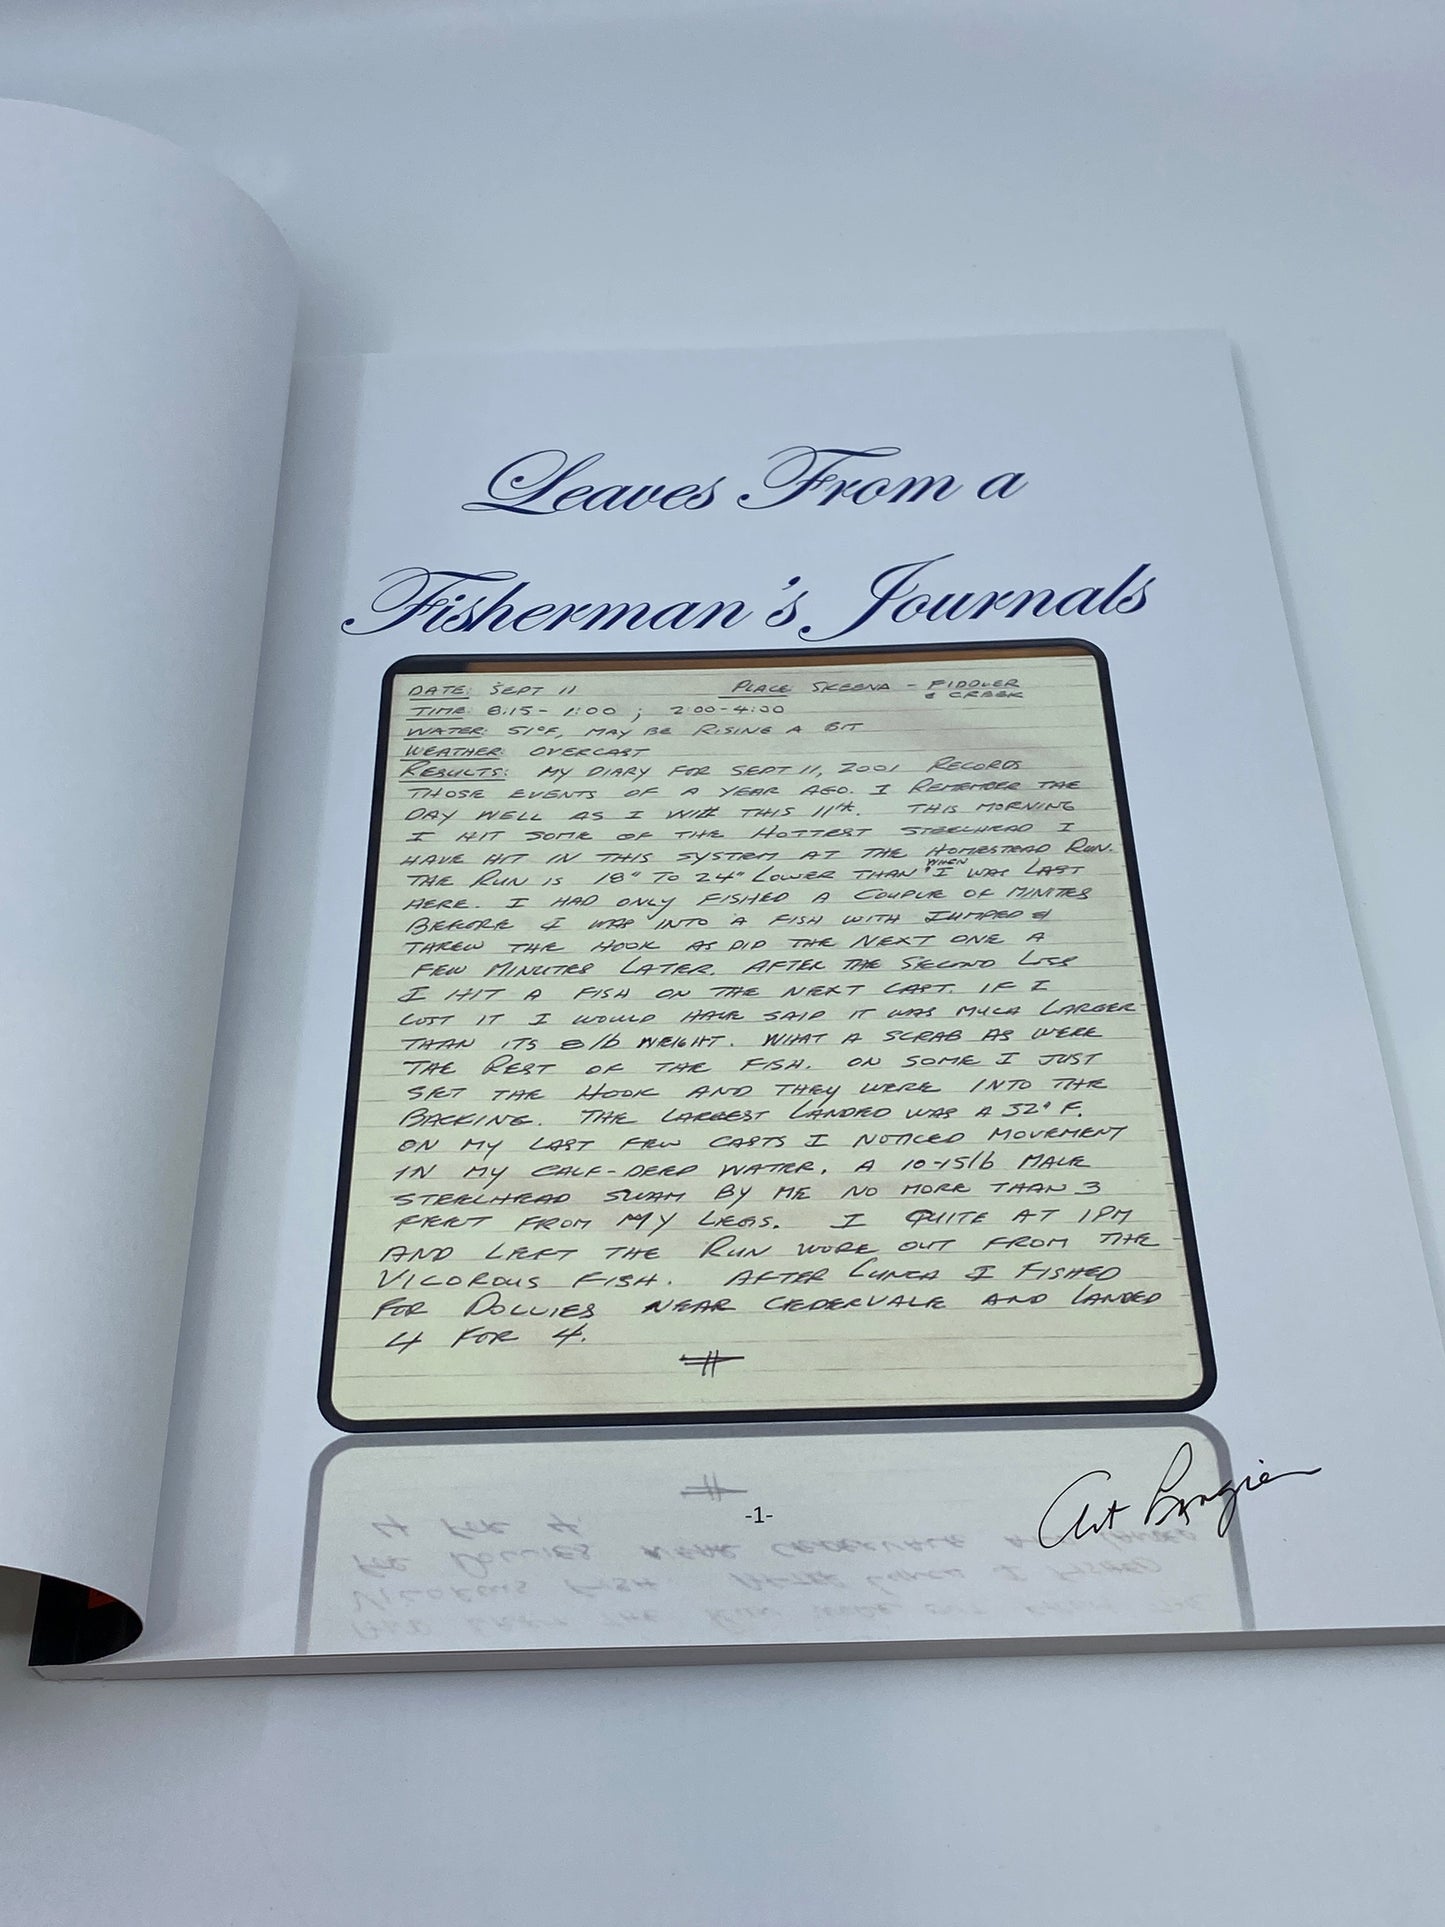 Leaves From a
Fisherman's Journals
DATE: SEPT 11 PLACE SKEENA - FIDDLER
& CREEK
TIME: 8:15 - 1:00 ; 2:00-4:00
WATER: 51°F, MAY BE RISING A BIT
WEATHER: OVERCAST
RESULTS: MY DIARY FOR SEPT 11, 2001 RECORDS
THOSE EVENTS OF A YEAR AGO. I REMEMBER THE
DAY WELL AS I WILL THIS 11th. THIS MORNING
I HIT SOME OF THE HOTTEST STEELHEAD I
HAVE HIT IN THIS SYSTEM AT THE HOMESTEAD RUN.
THE RUN IS 18" TO 24" LOWER THAN WHEN I WAS LAST
HERE. I HAD ONLY FISHED A COUPLE OF MINUTES
BEFORE I WAS INTO A FISH WITH JUMPED &
THREW THE HOOK AS DID THE NEXT ONE A
FEW MINUTES LATER. AFTER THE SECOND LOSS
I HIT A FISH ON THE NEXT CAST. IF I
LOST IT I WOULD HAVE SAID IT WAS MUCH LARGER
THAN ITS 8 lb WEIGHT. WHAT A SCRAB AS WERE
THE REST OF THE FISH. ON SOME I JUST
SET THE HOOK AND THEY WERE INTO THE
BACKING. THE LARGEST LANDED WAS A 32" F.
ON MY LAST FEW CASTS I NOTICED MOVEMENT
IN MY CALF-DEEP WATER. A 10-15 lb MALE
STEELHEAD SWAM BY ME NO MORE THAN 3
FEET FROM MY LEGS. I QUITE AT 1PM
AND LEFT THE RUN WORE OUT FROM THE
VICOROUS FISH. AFTER LUNCH I FISHED
FOR DOLLIES NEAR CEDERVALE AND LANDED
4 FOR 4.
-1-
Art